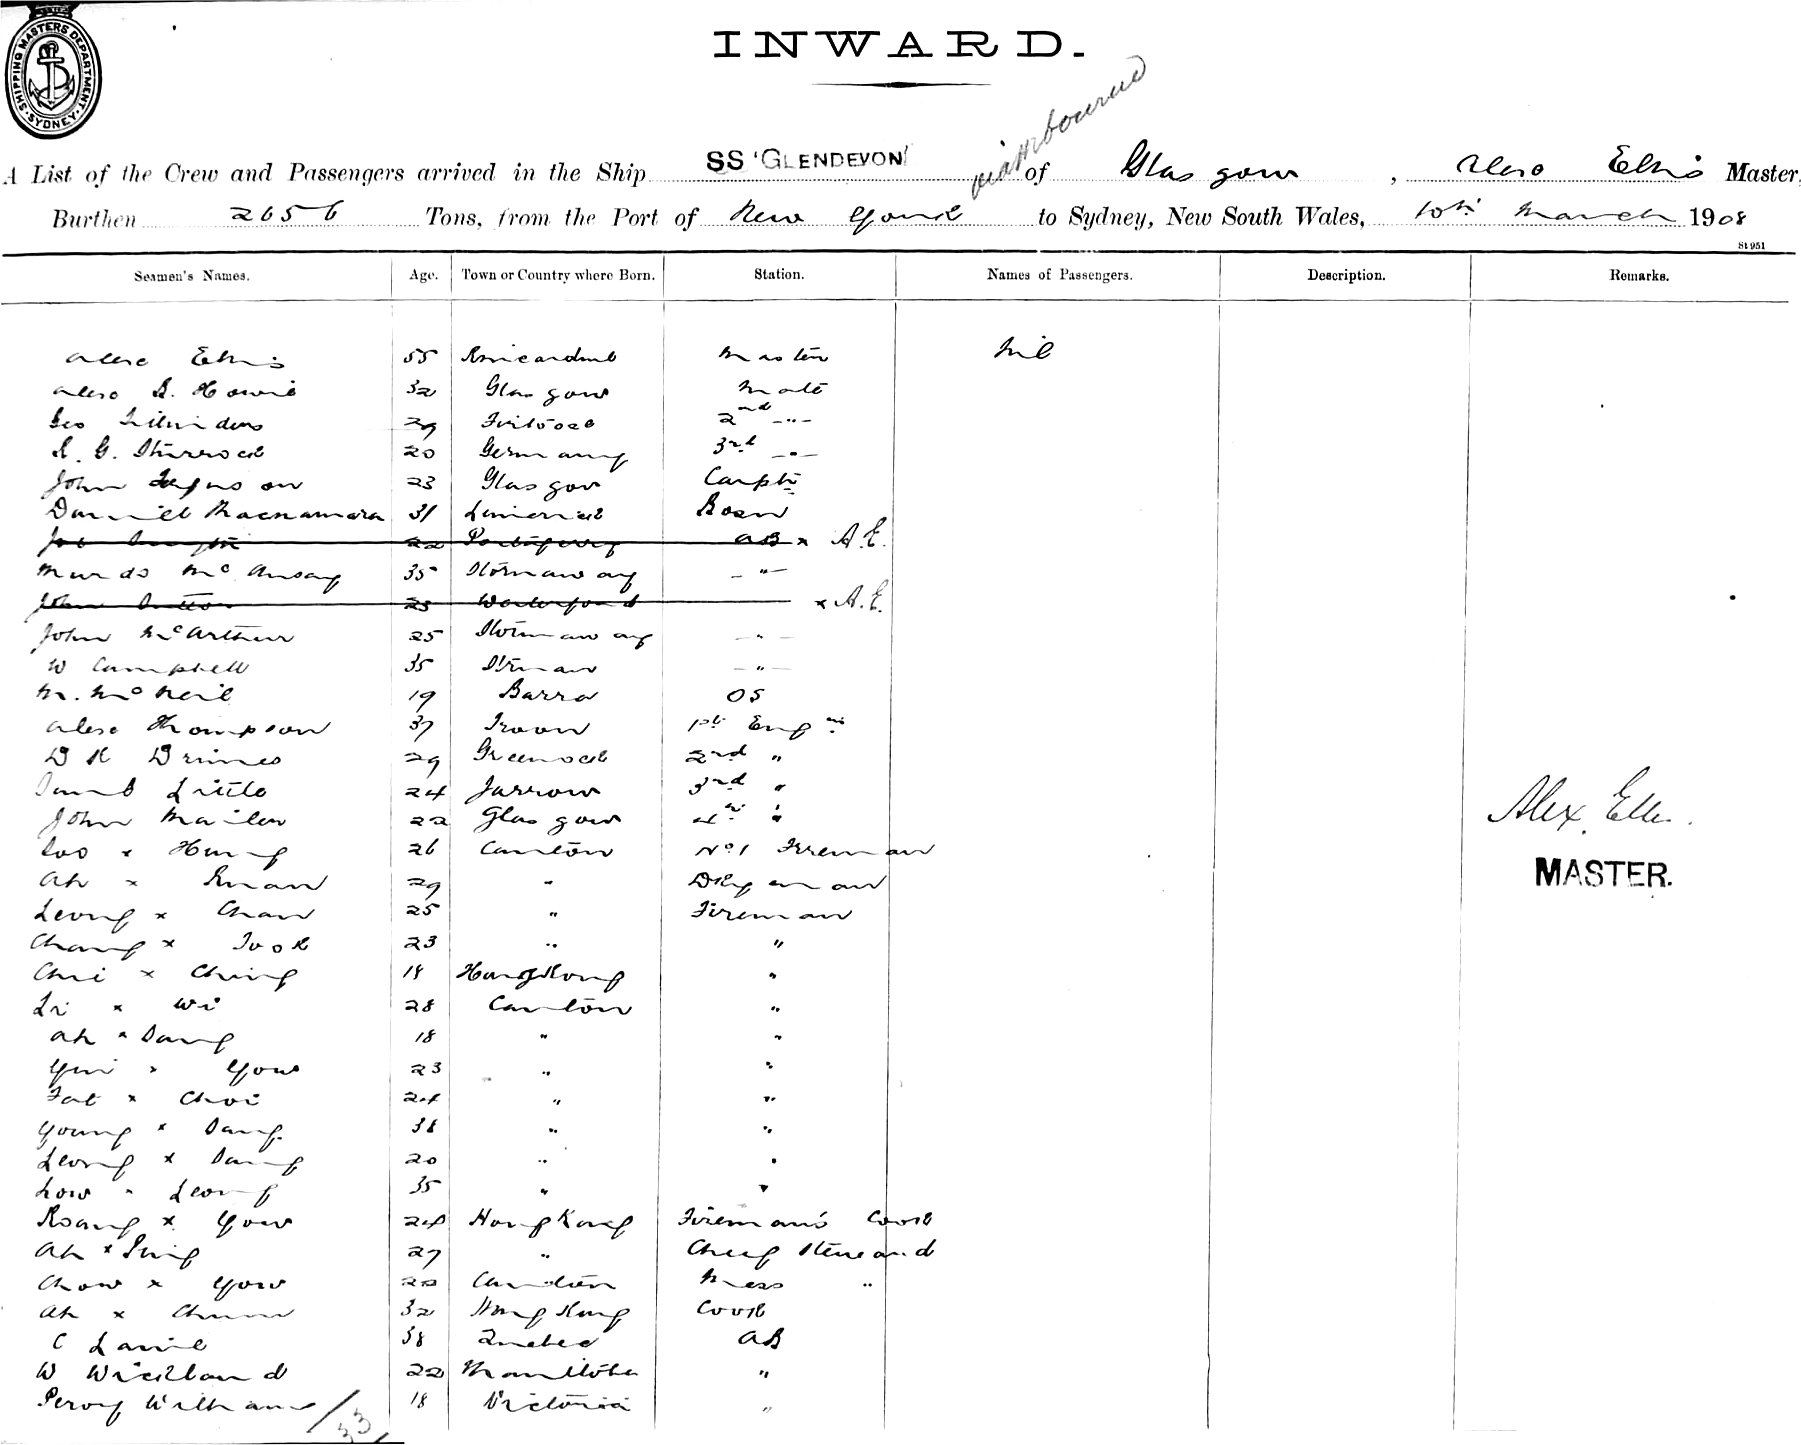 SHIPPING MASTERS DEPARTMENT. SYDNEY.
INWARD.
A List of the Crew and Passengers arrived in the Ship SS 'GLENDEVON' via Melbourne of Glasgow, Alex Ellis Master,
Burthen 2656 Tons, from the Port of New York to Sydney, New South Wales, 10th March 1908
St 951
Seamen's Names. Age. Town or Country where Born. Station. Names of Passengers. Description. Remarks.
Alex Ellis 55 Kincardine Master Nil
Alex B. Howie 32 Glasgow Mate
Geo 29 2nd -"-
R. G. Sturrock 20 Germany 3rd -"-
John Ferguson 23 Glasgow Carptr
Daniel Macnamara 31 Limerick Bosn
22 AB x A.E.
Murdo McAulay 35 Stornaway -"-
John 25 Waterford x A.E.
John McArthur 25 Stornaway -"-
W Campbell 35 -"-
M. McNeil 19 Barra OS
Alex Thompson 37 Troon 1st Engnr
D K 29 Greenock 2nd "
David Little 24 Jarrow 3rd "
John 22 Glasgow 4th "
x Hung 26 Canton No 1 Fireman
Ah x 29 " Dkyman
Leong x Chan 25 " Fireman
Chang x Took 23 " "
Chi x Ching 18 HongKong "
Li x Wi 28 Canton "
Ah x 18 " "
x Yow 23 " "
Fat x Choi 24 " "
Young x 38 " "
Leong x 20 " "
Low x Leong 35 " "
x Yow 24 HongKong Fireman's Cook
Ah x 27 " Chief Steward
Chow x Yow 22 Canton Mess "
Ah x 32 Hong Kong Cook
C 38 Quebec AB
W 22 Manitoba "
Percy Williams 18 Victoria "
33
Alex. Ellis.
MASTER.